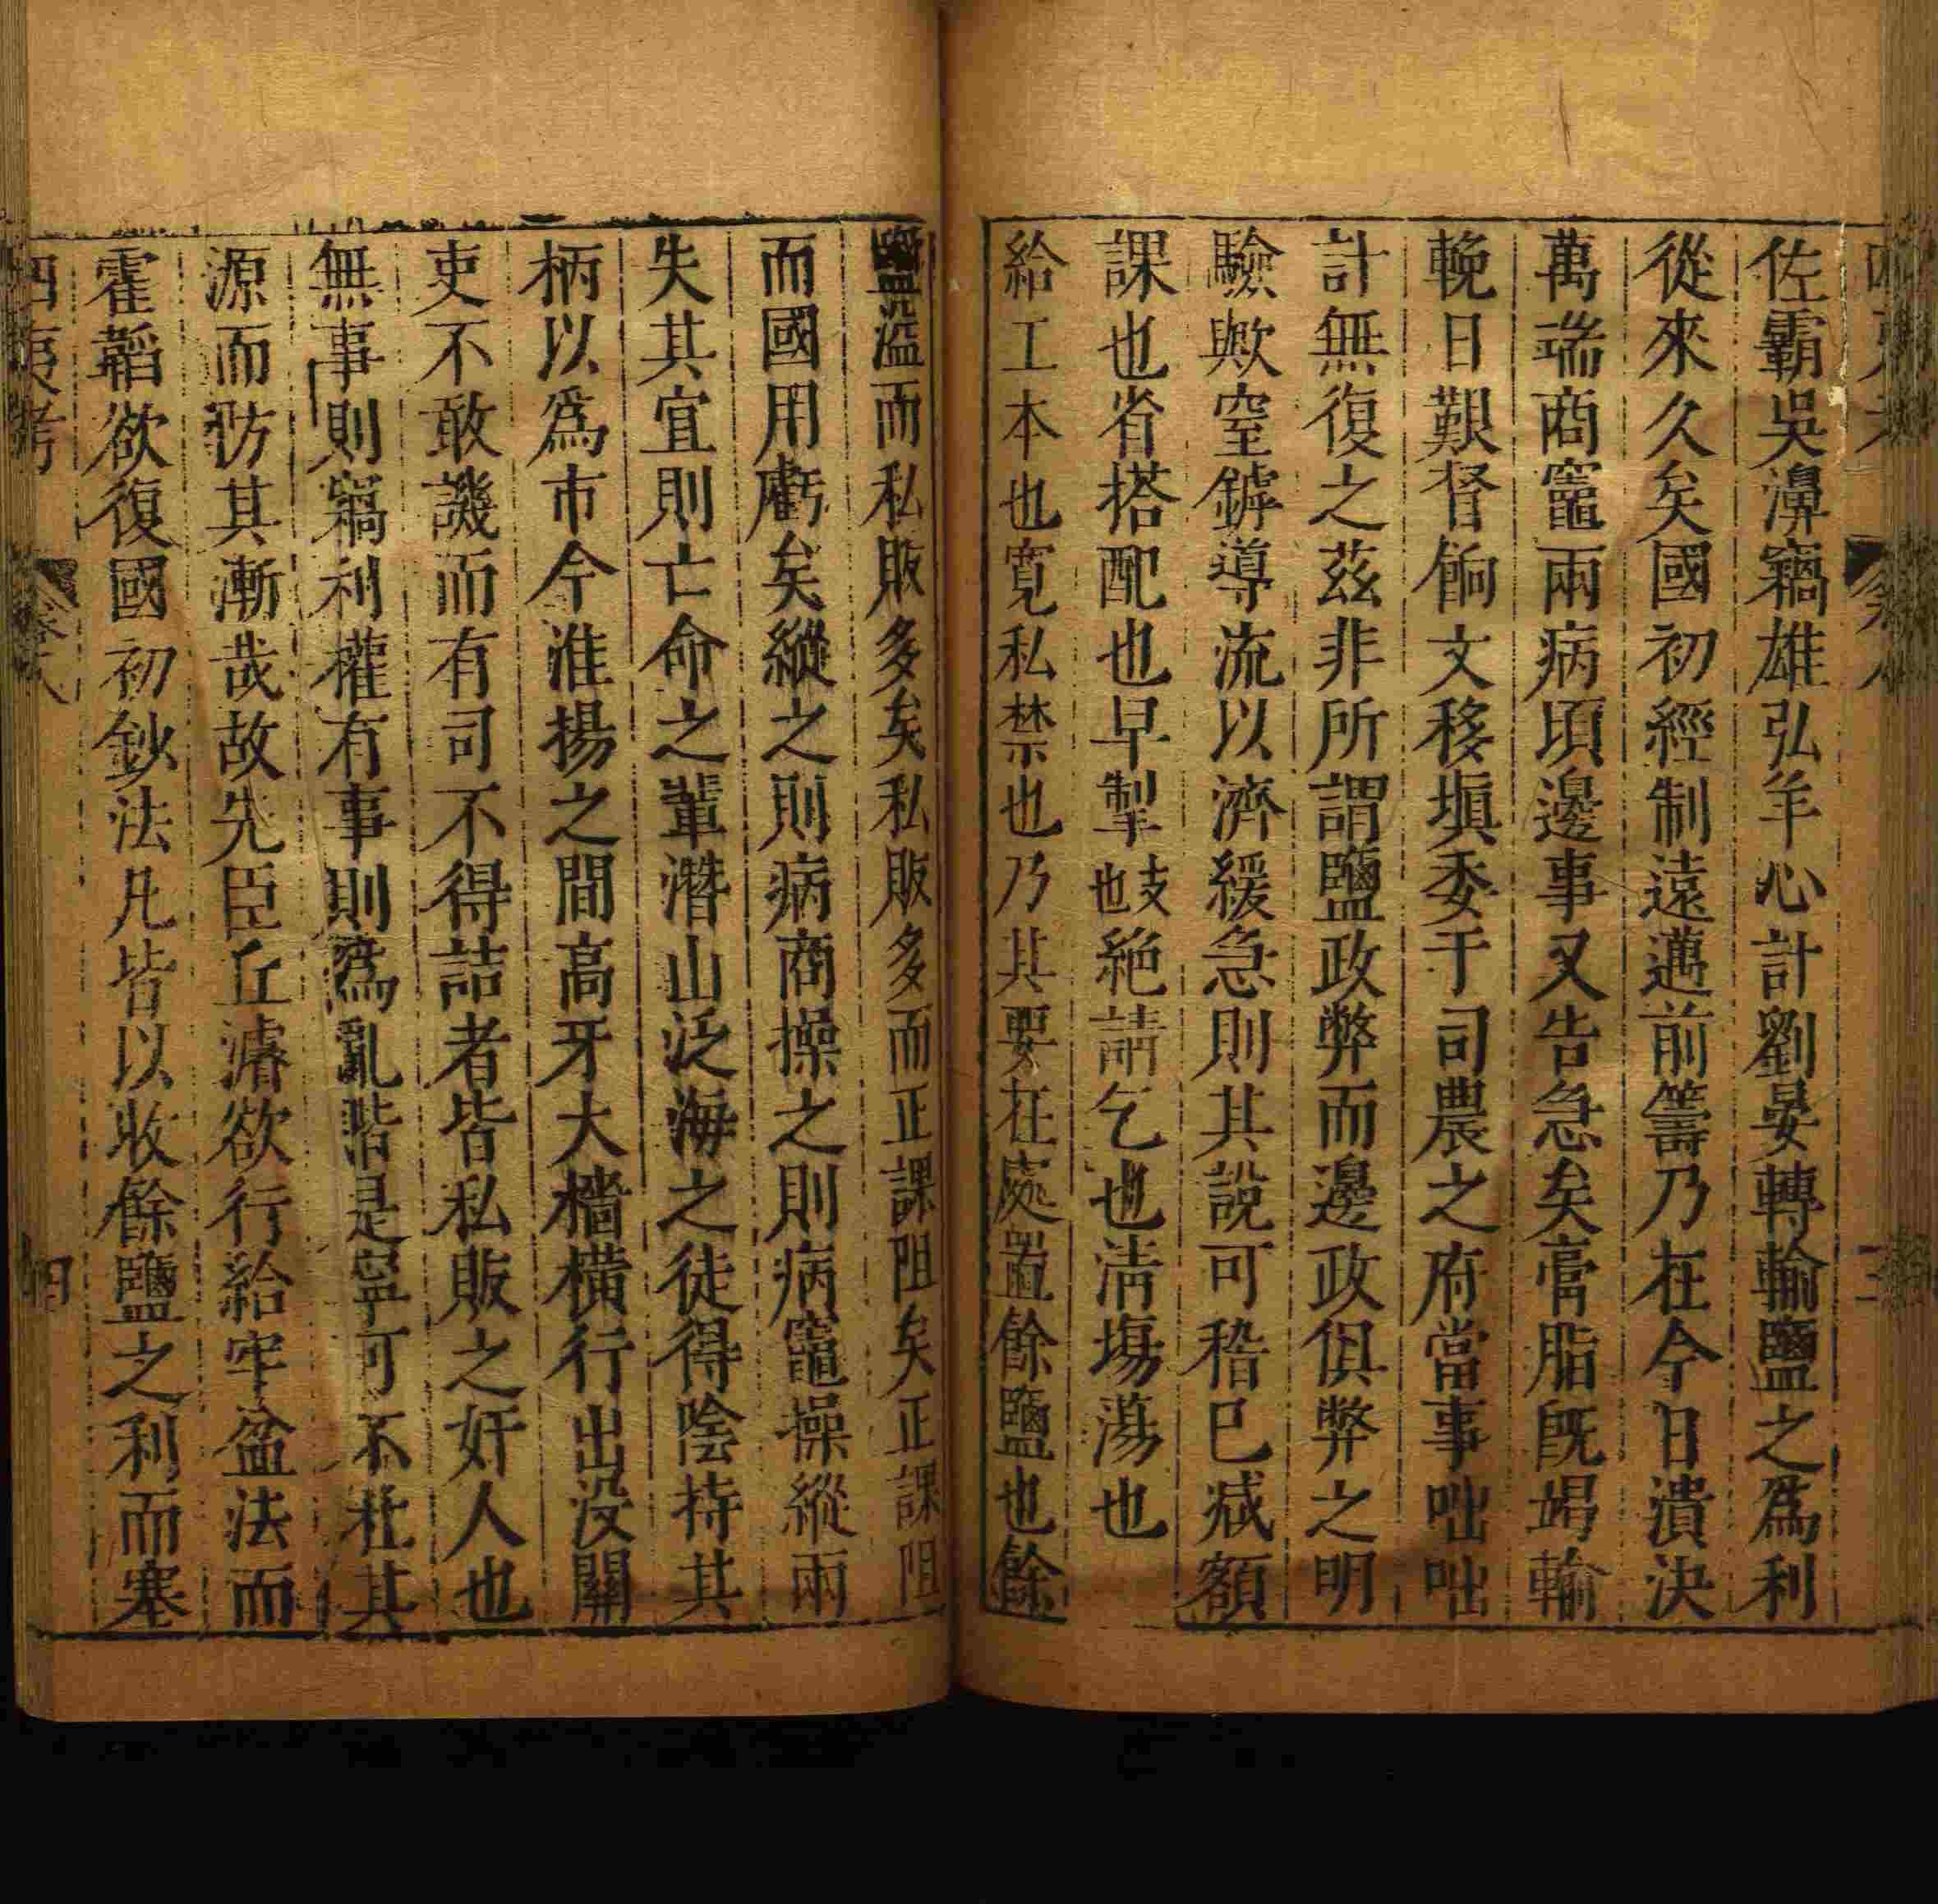 佐霸吳濞竊雄弘羊心計劉晏轉輸鹽之爲利
從來久矣國初經制遠邁前籌乃在今日潰決
萬端商竈兩病頃邊事又告急矣膏脂旣竭輸
輓日艱督餉文移塡委于司農之府當事咄咄
計無復之茲非所謂鹽政弊而邊政俱弊之明
驗歟窒鏬導流以濟緩急則其說可稽已減額
課也省搭配也早掣也支絶請乞也淸塲蕩也
給工本也寬私禁也乃其要在處置餘鹽也餘
鹽溢而私販多矣私販多而正課阻矣正課阻
而國用虧矣縱之則病商操之則病竈操縱兩
失其宜則亡命之輩潛山泛海之徒得陰持其
柄以爲市今淮揚之間高牙大檣橫行出沒關
吏不敢譏而有司不得詰者皆私販之奸人也
無事則竊利權有事則爲亂階是寧可不杜其
源而防其漸哉故先臣丘濬欲行給牢盆法而
霍韜欲復國初鈔法凡皆以收餘鹽之利而塞
四夷考 卷八 四